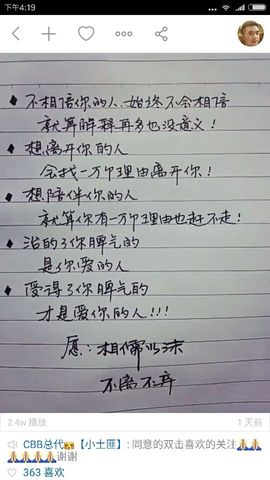 下午4:19
♦ 不相信你的人、始终不会相信
就算解释再多也没意义！
♦ 想离开你的人
会找一万个理由离开你！
♦ 想陪伴你的人
就算你有一万个理由也赶不走！
♦ 治的了你脾气的
是你爱的人
♦ 受得了你脾气的
才是爱你的人!!!
愿：相儒以沫
不离不弃
2.4w 播放
1 天前
CBB总代👸【小土匪】: 同意的双击喜欢的关注🙏🙏
🙏🙏🙏🙏🙏谢谢
363 喜欢